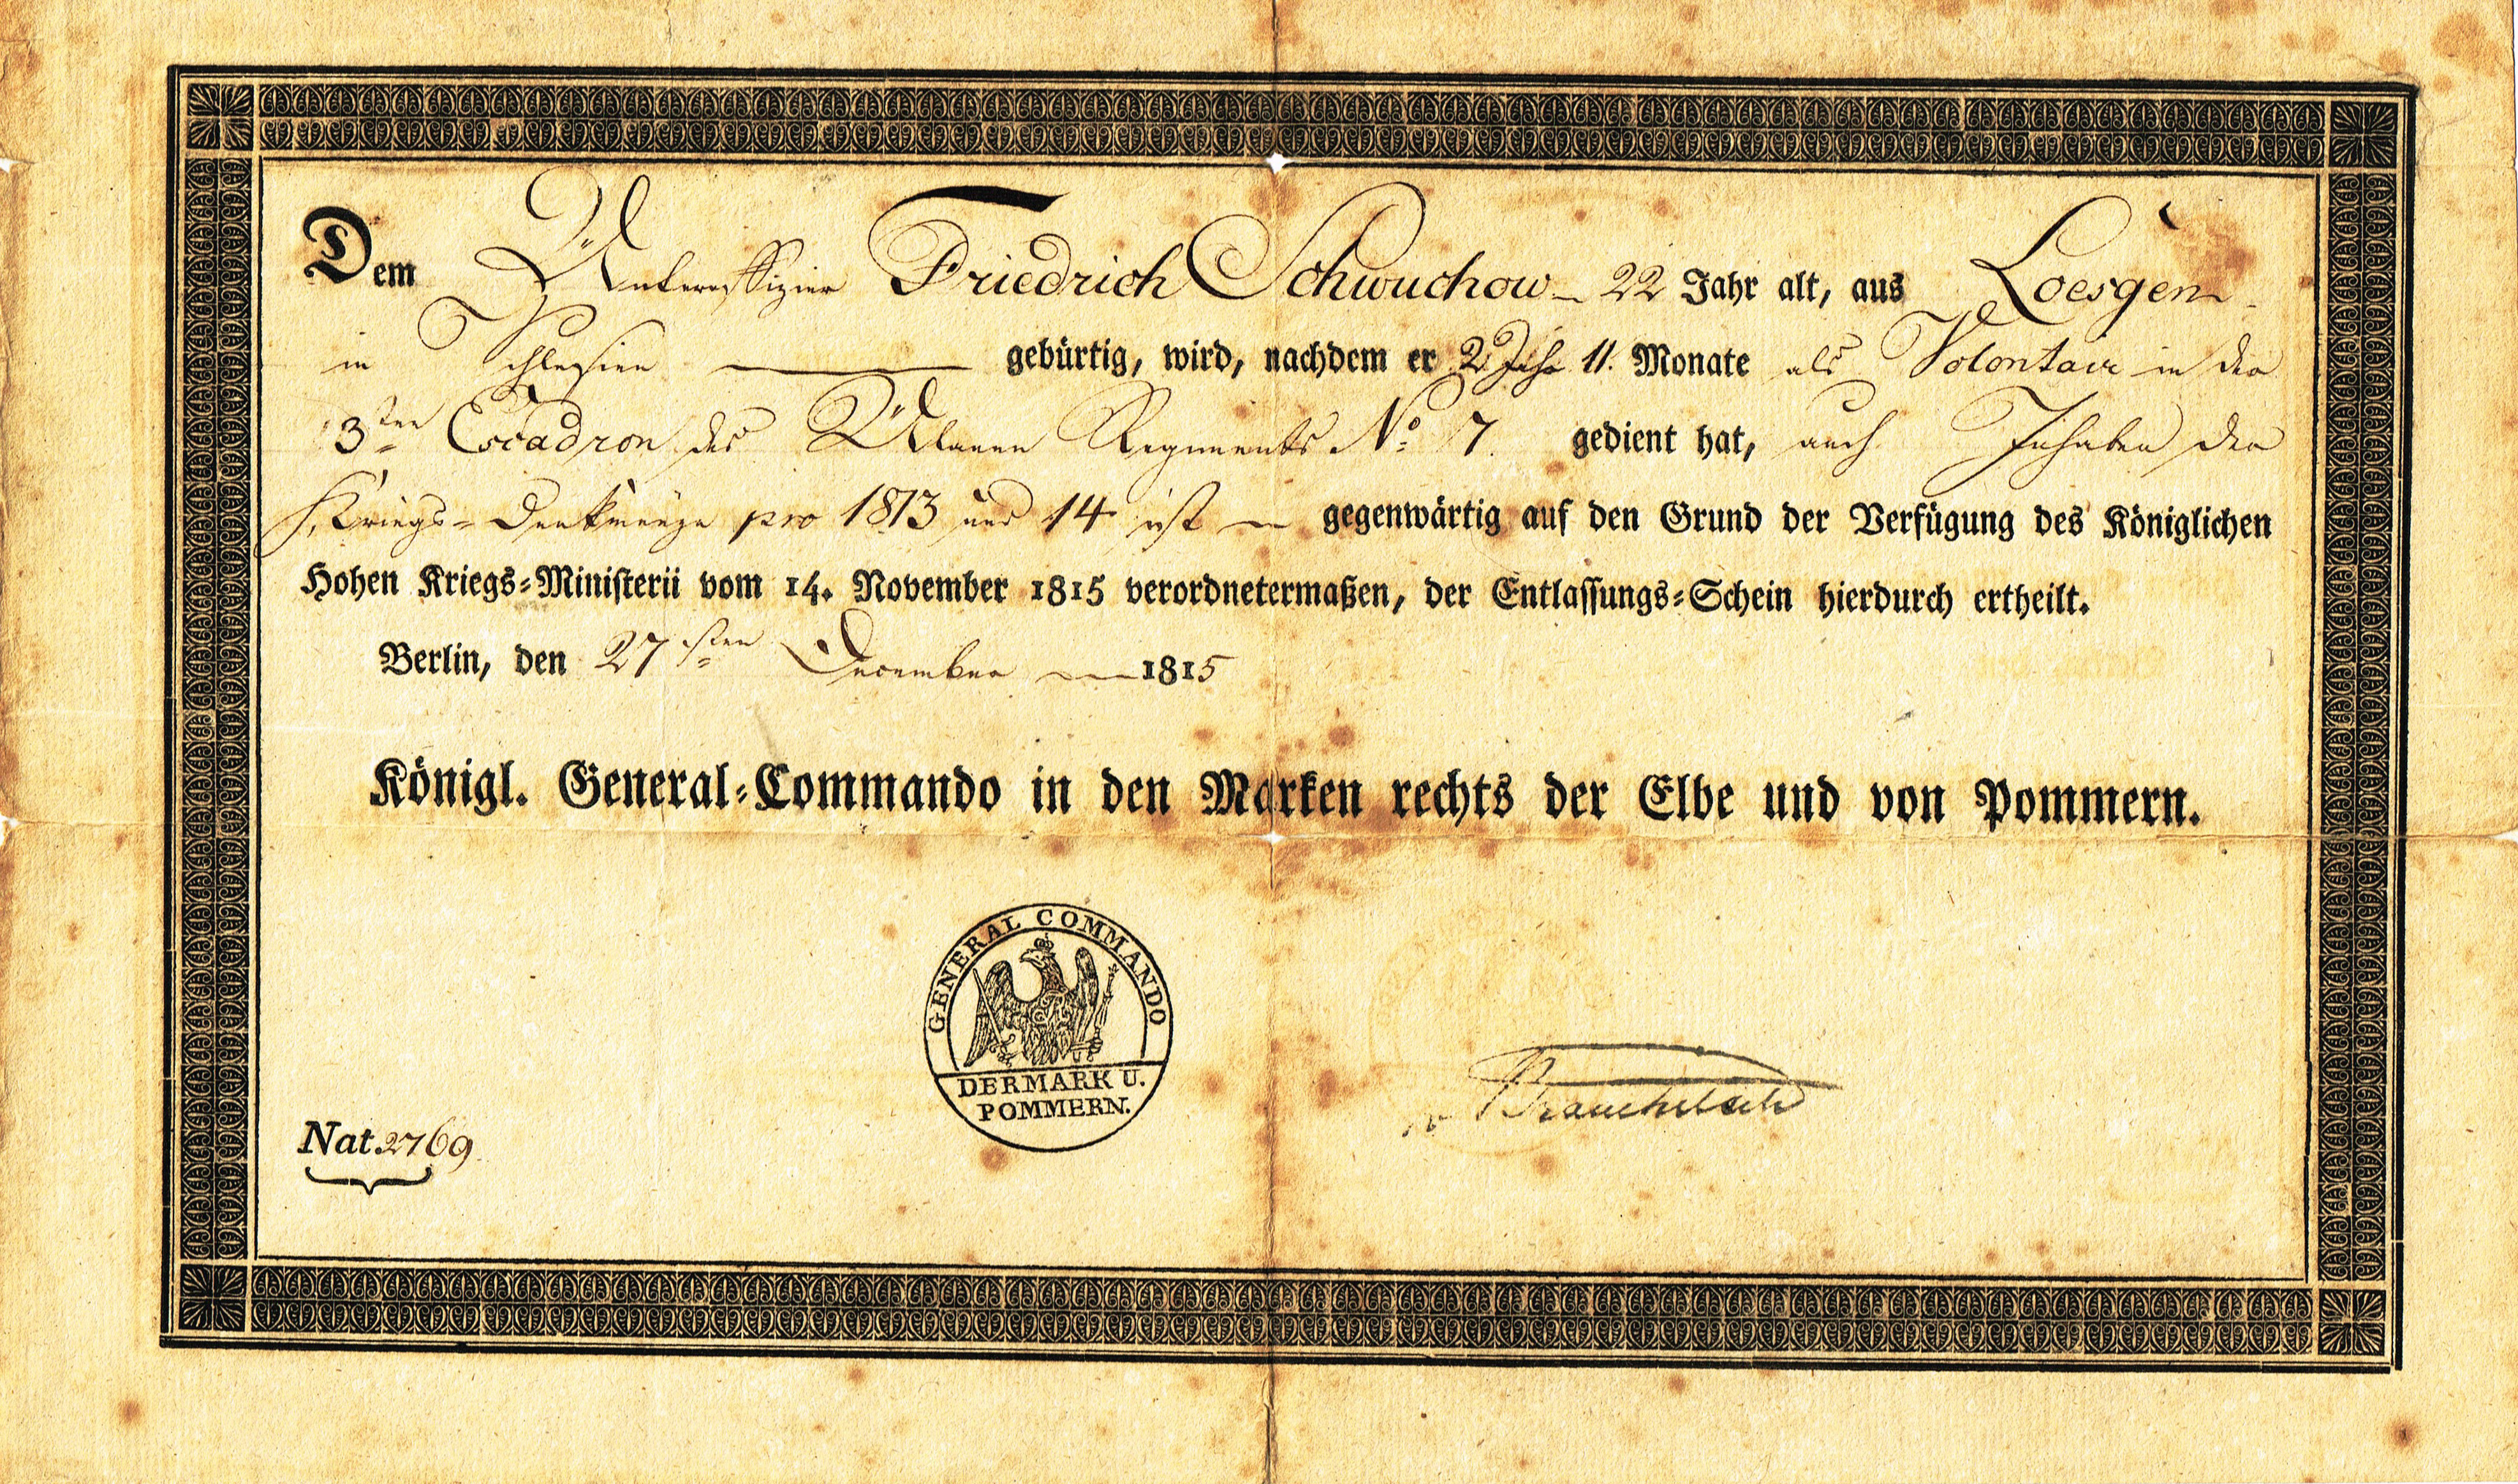 Dem Unteroffizier Friedrich Schwuchow 22 Jahr alt, aus Loesgen
in Schlesien gebürtig, wird, nachdem er 2 Jahr 11. Monate als Volontair in der
3ten Escadron des Ulanen Regiments No 7. gedient hat, auch Inhaber der
Kriegs-Denkmünze pro 1813 und 14 ist gegenwärtig auf den Grund der Verfügung des Königlichen
Hohen Kriegs-Ministerii vom 14. November 1815 verordnetermaßen, der Entlassungs-Schein hierdurch ertheilt.
Berlin, den 27sten December 1815
Königl. General-Commando in den Marken rechts der Elbe und von Pommern.
GENERAL COMMANDO
DER MARK U.
POMMERN.
v Brauchitsch
Nat. 2769